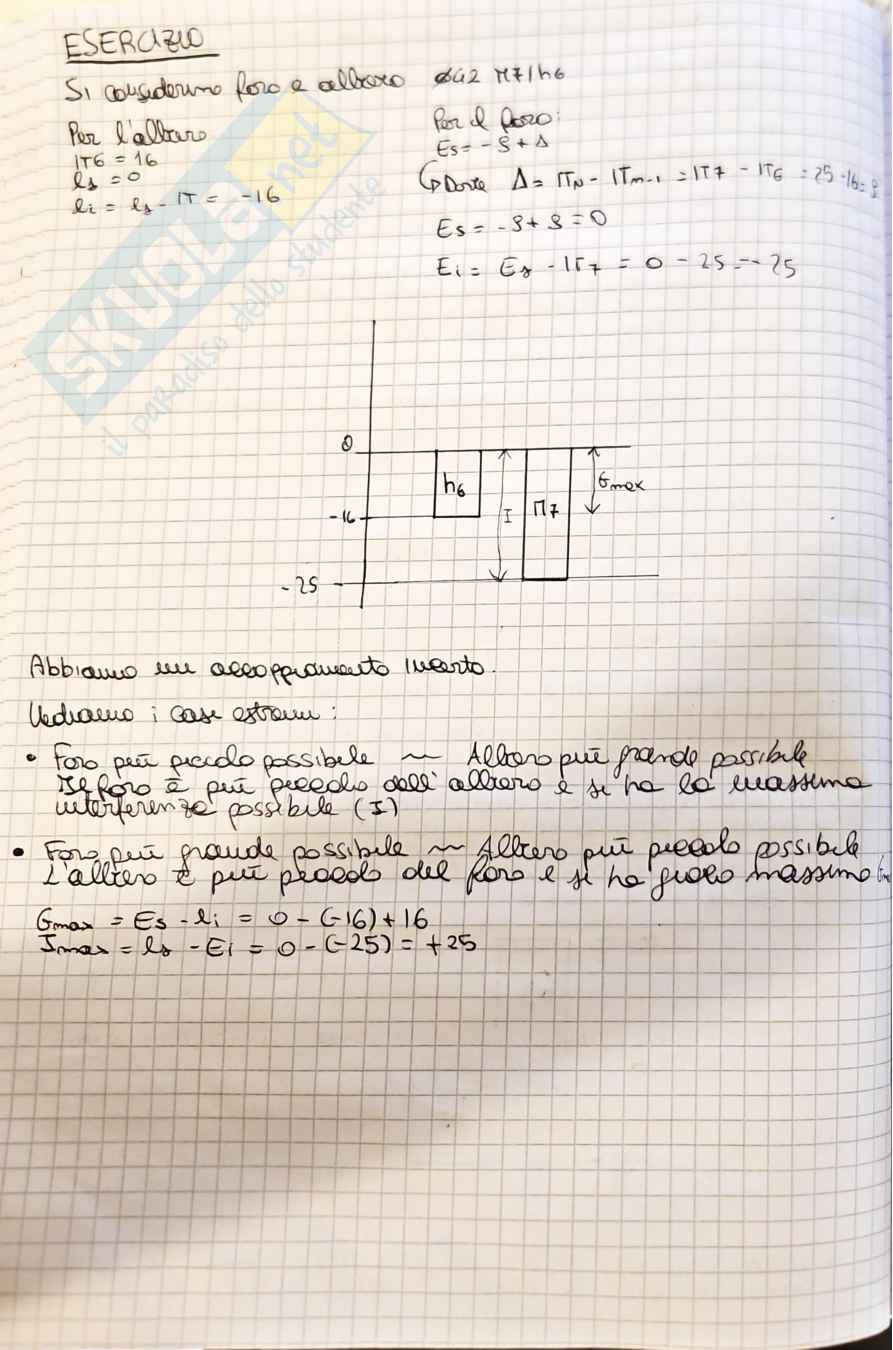 ESERCIZIO
Si considerino foro e albero ϕ42 M7/h6
Per l'albero
IT6 = 16
es = 0
ei = es - IT = -16
Per il foro:
Es = -9 + Δ
↳ Dove Δ = ITN - ITm-1 = IT7 - IT6 = 25 - 16 = 9
Es = -9 + 9 = 0
Ei = Es - IT7 = 0 - 25 = -25
0
h6
M7
Gmax
I
-16
-25
Abbiamo un accoppiamento incerto.
Vediamo i casi estremi:
• Foro più piccolo possibile ~ Albero più grande possibile
Il foro è più piccolo dell'albero e si ha la massima
interferenza possibile (I)
• Foro più grande possibile ~ Albero più piccolo possibile
L'albero è più piccolo del foro e si ha gioco massimo
Gmax = Es - ei = 0 - (-16) + 16
Imax = es - Ei = 0 - (-25) = +25
SKUOLA.net
il paradiso dello studente